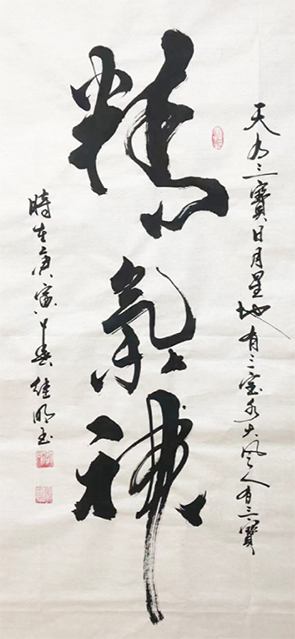 天有三寶日月星地有三宝水火風人有三寶
精氣神
時在庚寅春維明書